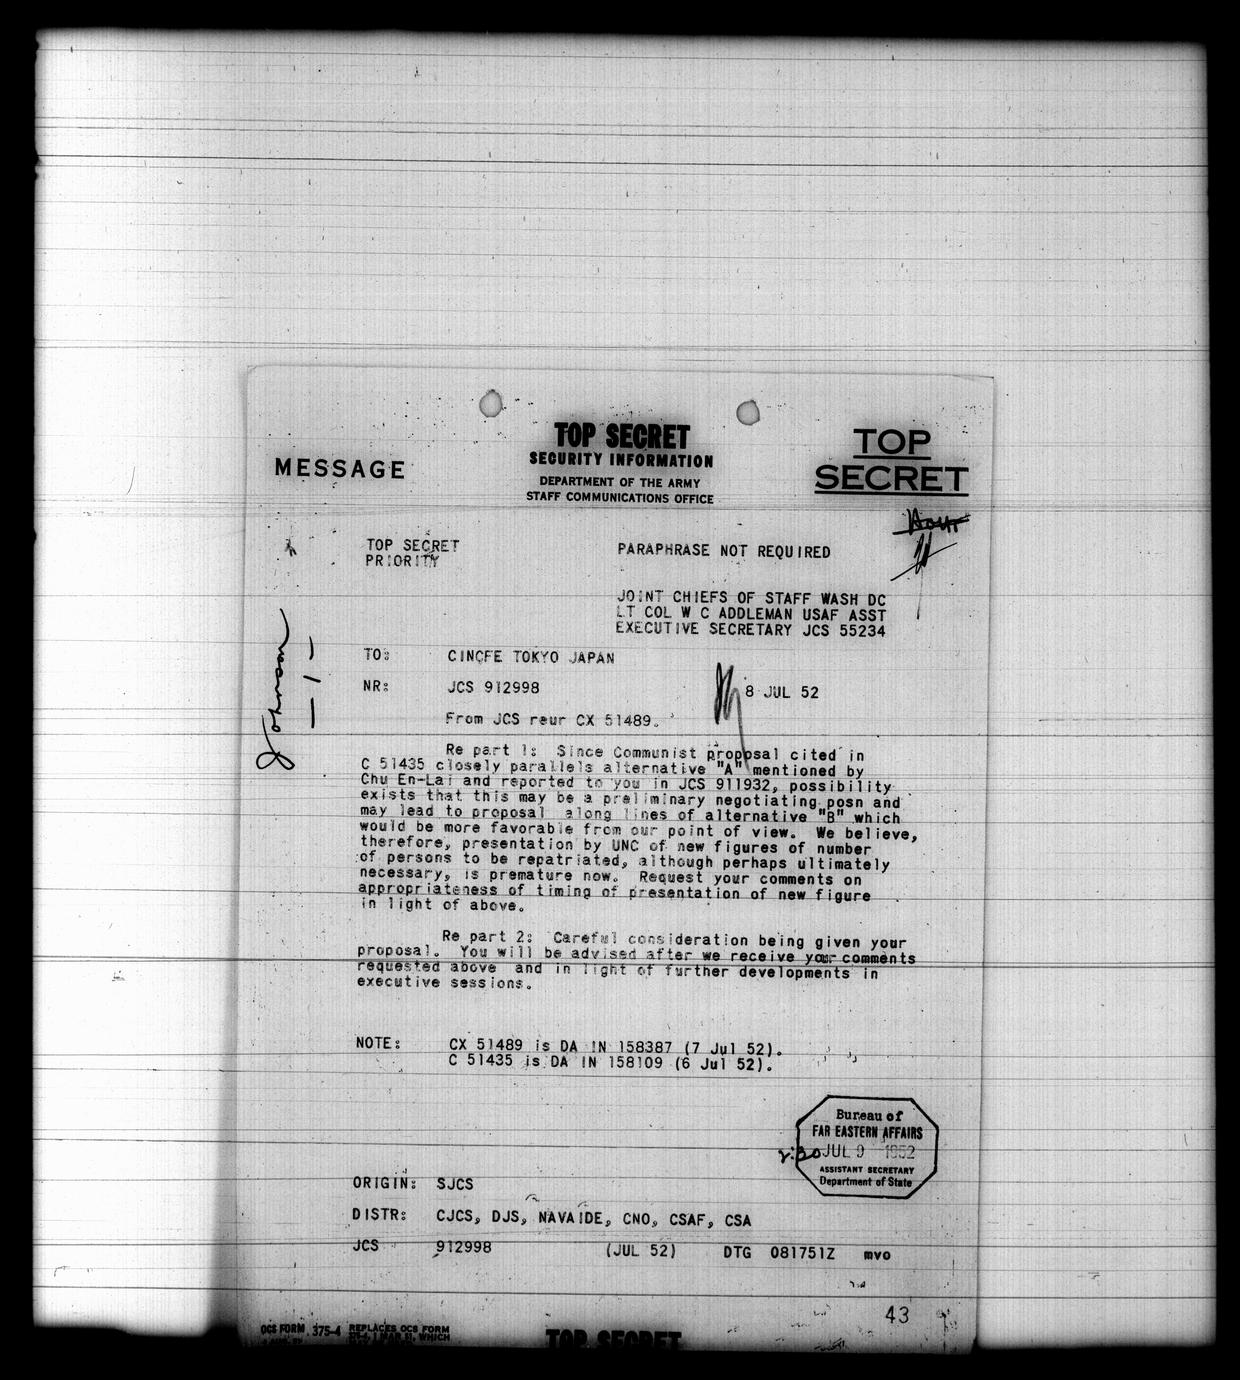 MESSAGE
TOP SECRET
SECURITY INFORMATION
DEPARTMENT OF THE ARMY
STAFF COMMUNICATIONS OFFICE
TOP
SECRET
TOP SECRET
PRIORITY
PARAPHRASE NOT REQUIRED
JOINT CHIEFS OF STAFF WASH DC
LT COL W C ADDLEMAN USAF ASST
EXECUTIVE SECRETARY JCS 55234
Johnson
— 1 —
TO: CINCFE TOKYO JAPAN
NR: JCS 912998 8 JUL 52
From JCS reur CX 51489.
Re part 1: Since Communist proposal cited in
C 51435 closely parallels alternative "A" mentioned by
Chu En-Lai and reported to you in JCS 911932, possibility
exists that this may be a preliminary negotiating posn and
may lead to proposal along lines of alternative "B" which
would be more favorable from our point of view. We believe,
therefore, presentation by UNC of new figures of number
of persons to be repatriated, although perhaps ultimately
necessary, is premature now. Request your comments on
appropriateness of timing of presentation of new figure
in light of above.
Re part 2: Careful consideration being given your
proposal. You will be advised after we receive your comments
requested above and in light of further developments in
executive sessions.
NOTE: CX 51489 is DA IN 158387 (7 Jul 52).
C 51435 is DA IN 158109 (6 Jul 52).
Bureau of
FAR EASTERN AFFAIRS
JUL 9 1952
ASSISTANT SECRETARY
Department of State
ORIGIN: SJCS
DISTR: CJCS, DJS, NAVAIDE, CNO, CSAF, CSA
JCS 912998 (JUL 52) DTG 081751Z mvo
43
OCS FORM 375-4 REPLACES OCS FORM
375-4, 1 MAR 51, WHICH
TOP SECRET